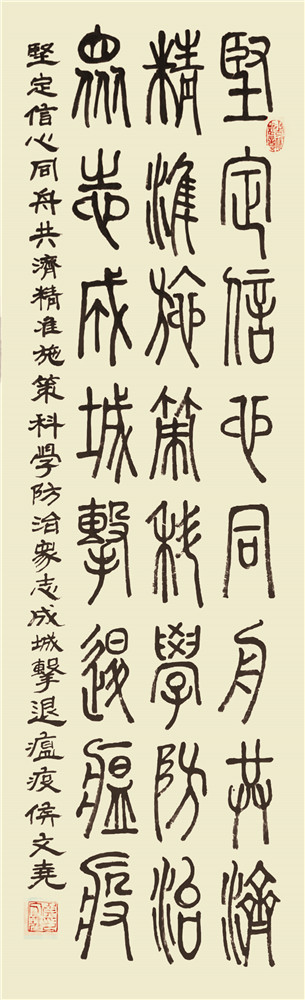 堅定信心同舟共濟
精準施策科學防治
眾志成城擊退瘟疫
堅定信心同舟共濟精准施策科學防治眾志成城擊退瘟疫侯文堯